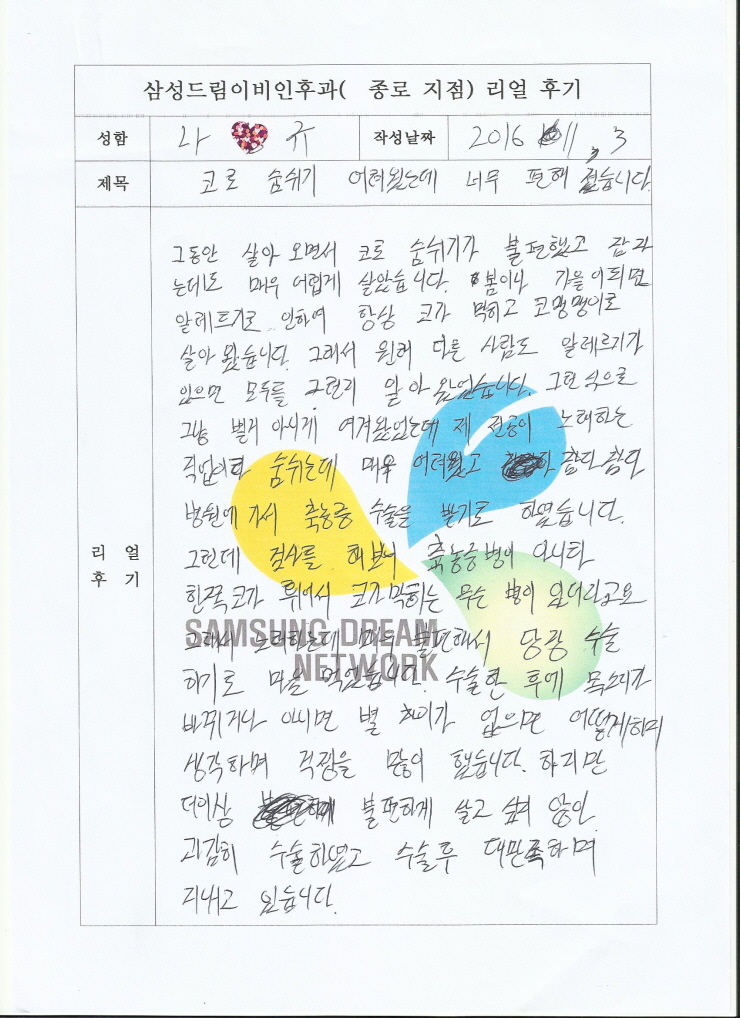 삼성드림이비인후과( 종로 지점) 리얼 후기
성함 나 규 작성날짜 2016 11. 3
제목 코로 숨쉬기 어려웠는데 너무 편해 졌습니다.
그동안 살아 오면서 코로 숨쉬기가 불편했고 잠자
는데도 매우 어렵게 살았습니다. 봄이나 가을이되면
알레르기로 인하여 항상 코가 막히고 코맹맹이로
살아 왔습니다. 그래서 원래 다른 사람도 알레르기가
있으면 모두들 그런지 알아 왔었습니다. 그런 식으로
그냥 별거 아니게 여겨왔었는데 제 전공이 노래하는
직업이라 숨쉬는데 매우 어려웠고 참다 참다
병원에 가서 축농증 수술을 받기로 하였습니다.
그런데 검사를 해보니 축농증병이 아니라
한쪽코가 휘어서 코가막히는 무슨 병이 있더라고요
그래서 노래하는데 매우 불편해서 당장 수술
하기로 마음 먹었습니다. 수술한 후에 목소리가
바뀌거나 아니면 별 차이가 없으면 어떻게하며
생각하며 걱정을 많이 했습니다. 하지만
더이상 불편하게 살고 싶지 않아
과감히 수술하였고 수술후 대만족하며
지내고 있습니다.
리 얼
후 기
SAMSUNG DREAM
NETWORK